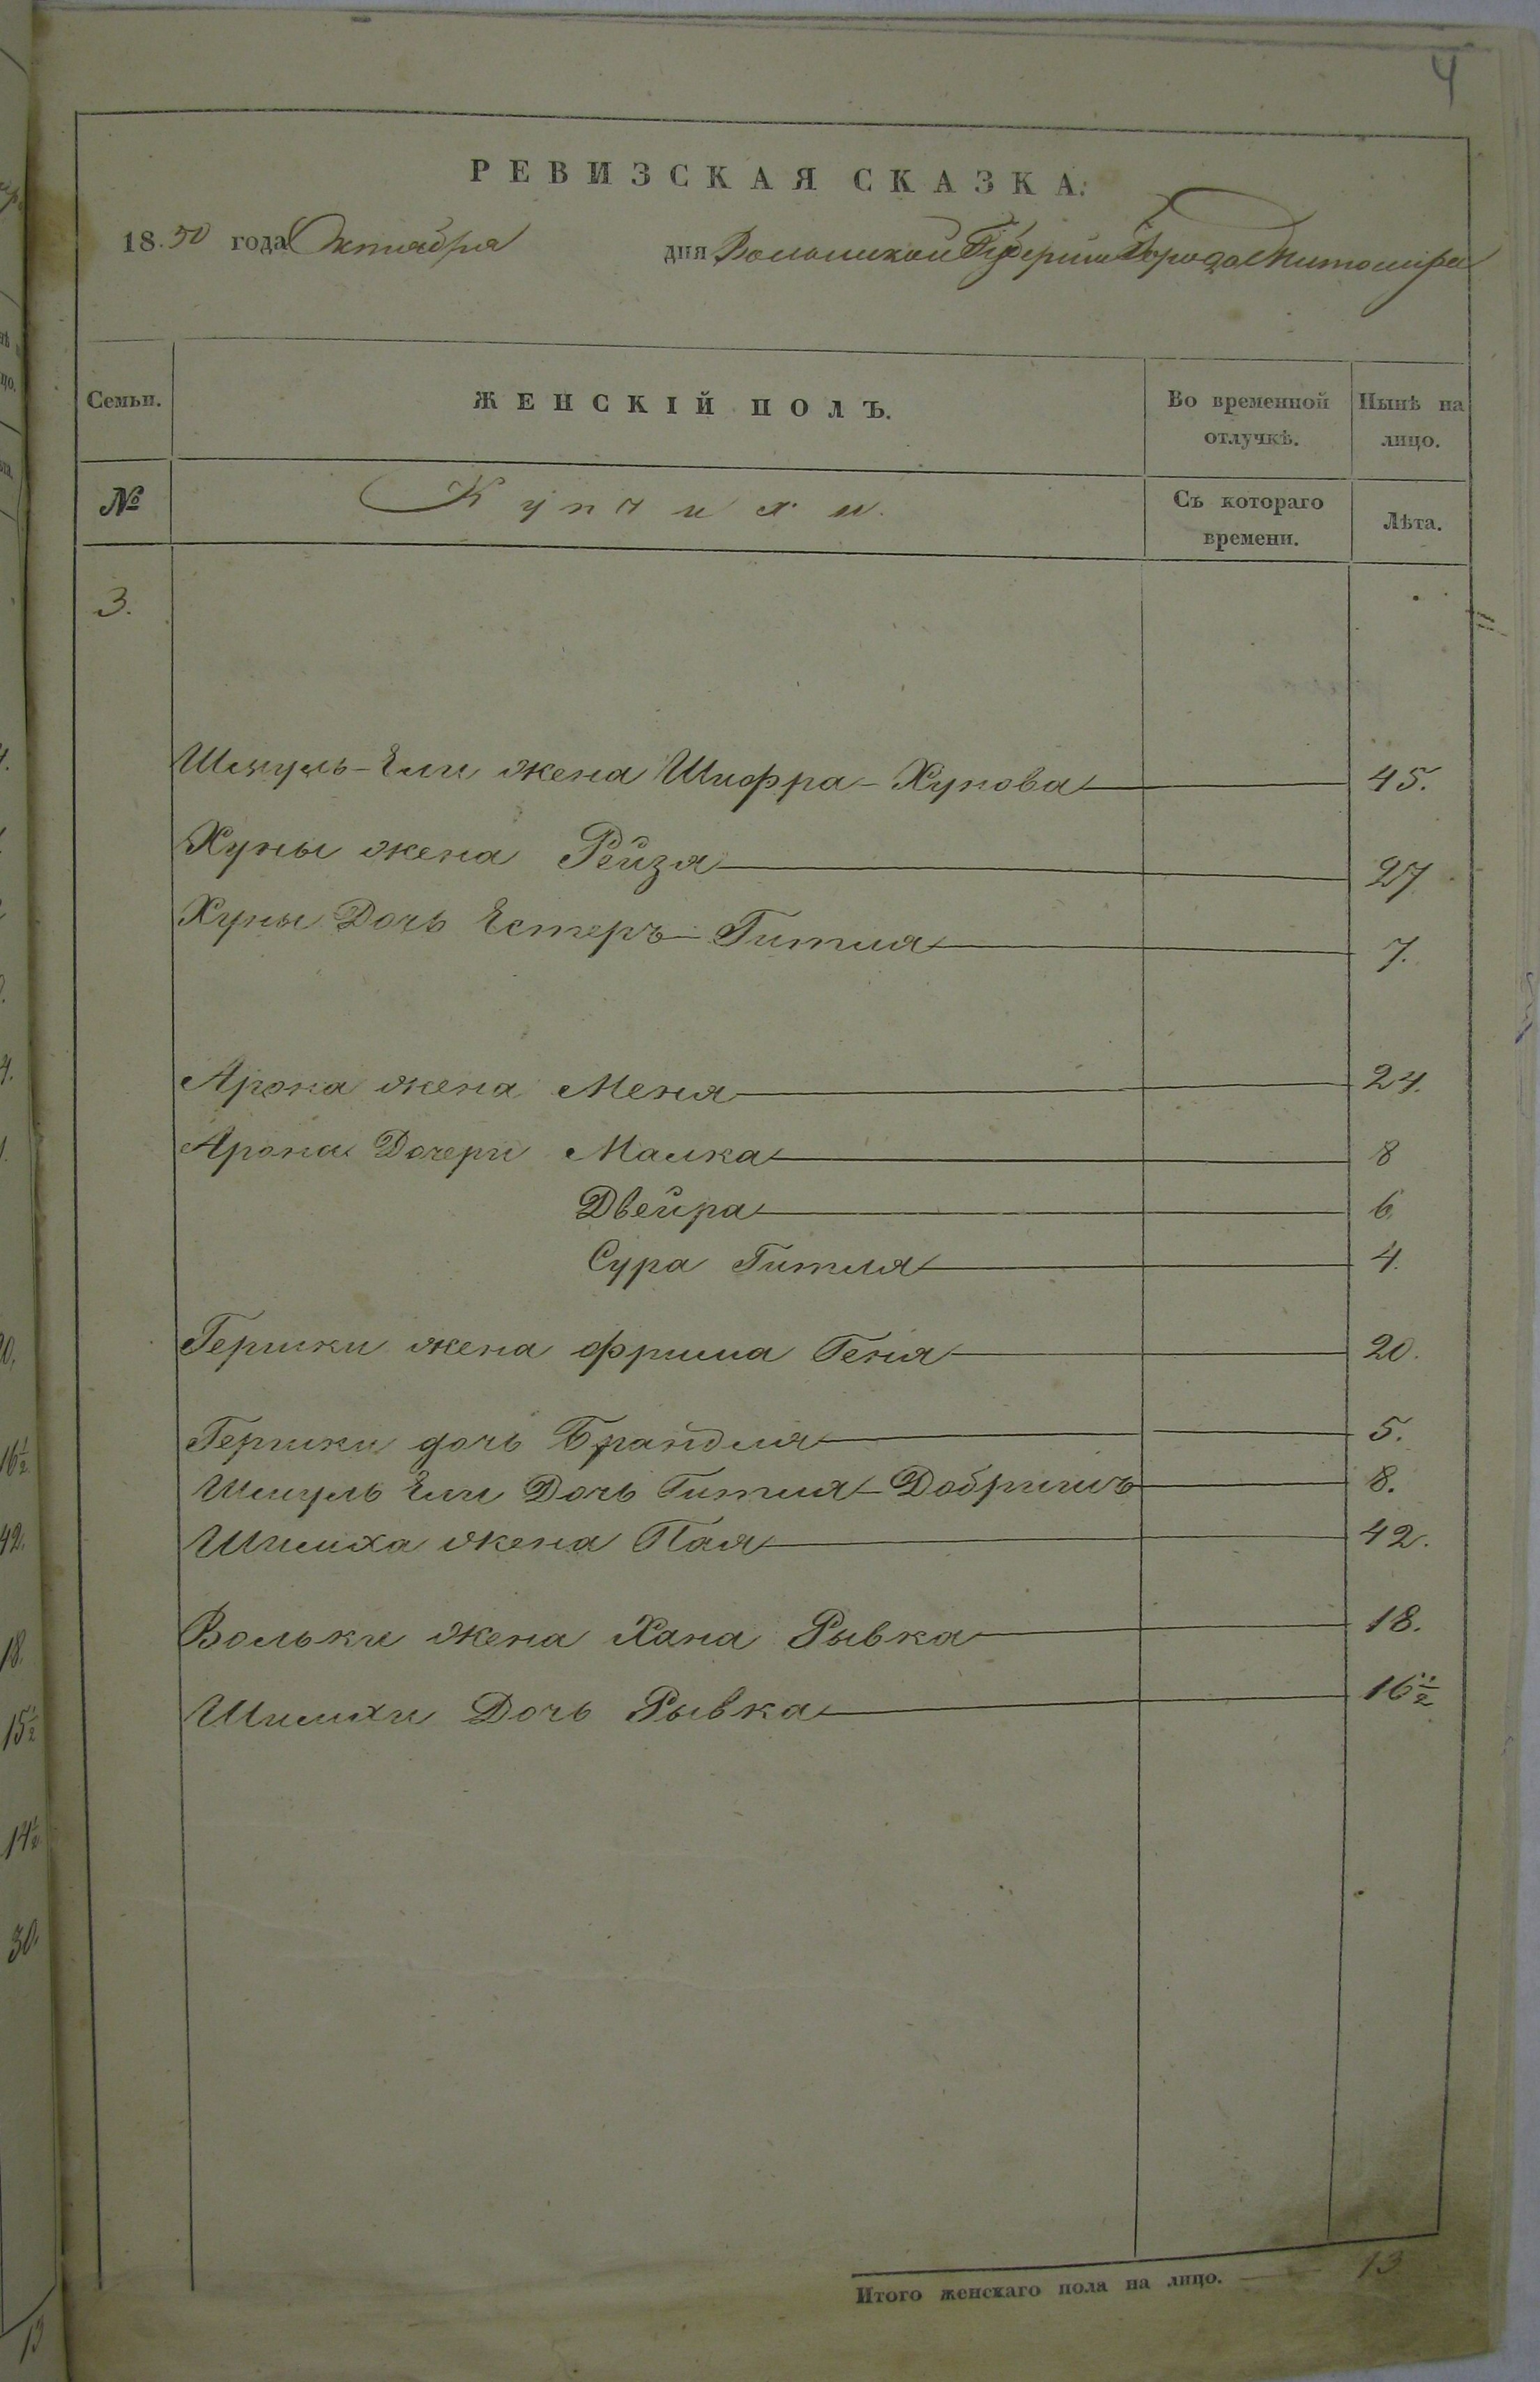 4
РЕВИЗСКАЯ СКАЗКА.
1850 года Октября дня Волынской Губернии Города Житомира
Семьи. ЖЕНСКІЙ ПОЛЪ. Во временной отлучкѣ. Нынѣ на лицо.
№ Купчихи. Съ котораго времени. Лѣта.
3.
Шмуль-Ели жена Шифра-Хунова 45.
Хуны жена Рейзя 27
Хуны Дочь Естеръ-Гитля 7.
Арона жена Меня 24.
Арона Дочери Малка 8
Двейра 6
Сура Гитля 4.
Гершки жена Фрима Геня 20.
Гершки дочь Брайдля 5.
Шмуль Ели Дочь Гитля-Добришъ 8.
Шилиха жена Пая 42.
Вольки жена Хана Рывка 18.
Шилихи Дочь Рывка 16½
Итого женскаго пола на лицо. 13